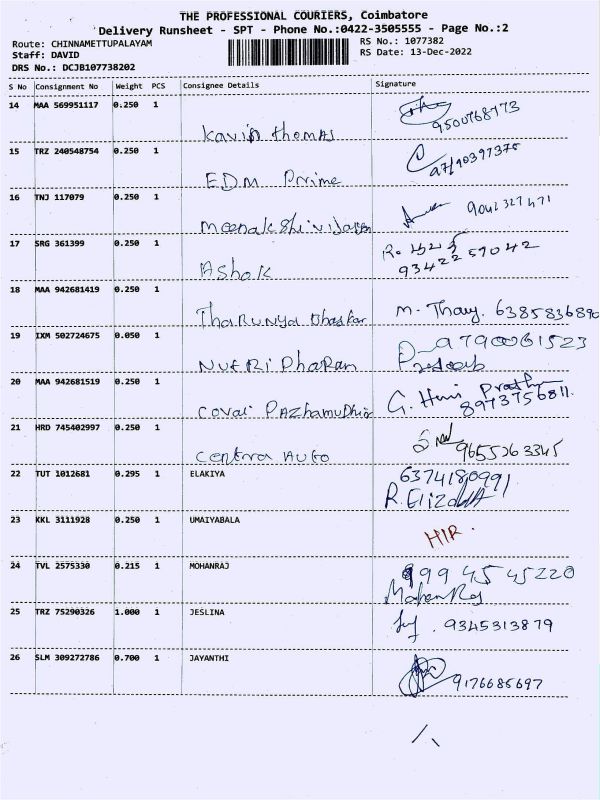 THE PROFESSIONAL COURIERS, Coimbatore
Delivery Runsheet - SPT - Phone No.:0422-3505555 - Page No.:2
Route: CHINNAMETTUPALAYAM RS No.: 1077382
Staff: DAVID RS Date: 13-Dec-2022
DRS No.: DCJB107738202
S No Consignment No Weight PCS Consignee Details Signature
14 MAA 569951117 0.250 1
Kavin Thomas 9500768173
15 TRZ 240548754 0.250 1
EDM Prime
16 TNJ 117079 0.250 1
9042327471
17 SRG 361399 0.250 1
Ashok 9342259042
18 MAA 942681419 0.250 1
Tharunya Bhaskar 6385836890
19 IXM 502724675 0.050 1 9790061523
Nutri Dharan Pradeep
20 MAA 942681519 0.250 1
Covai Pazhamudhir 8973756811
21 HRD 745402997 0.250 1
Centra Auto 9655263345
22 TUT 1012681 0.295 1 ELAKIYA 6374180991
23 KKL 3111928 0.250 1 UMAIYABALA
24 TVL 2575330 0.215 1 MOHANRAJ 994545220
25 TRZ 75290326 1.000 1 JESLINA 9345313879
26 SLM 309272786 0.700 1 JAYANTHI 9176686697